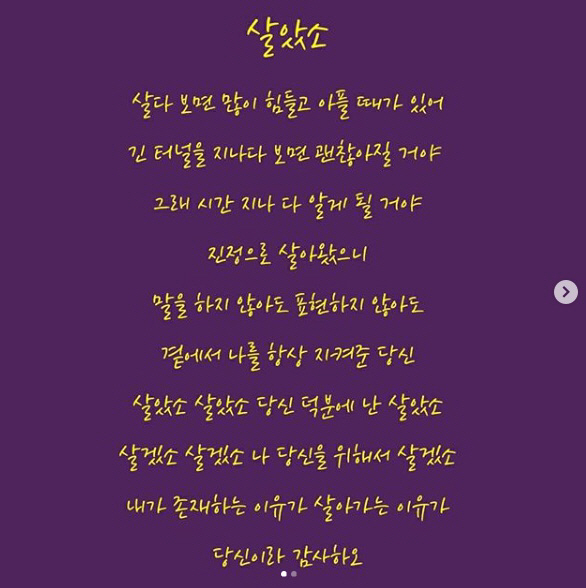 살았소
살다 보면 많이 힘들고 아플 때가 있어
긴 터널을 지나다 보면 괜찮아질 거야
그래 시간 지나 다 알게 될 거야
진정으로 살아왔으니
말을 하지 않아도 표현하지 않아도
곁에서 나를 항상 지켜준 당신
살았소 살았소 당신 덕분에 난 살았소
살겠소 살겠소 나 당신을 위해서 살겠소
내가 존재하는 이유가 살아가는 이유가
당신이라 감사하오